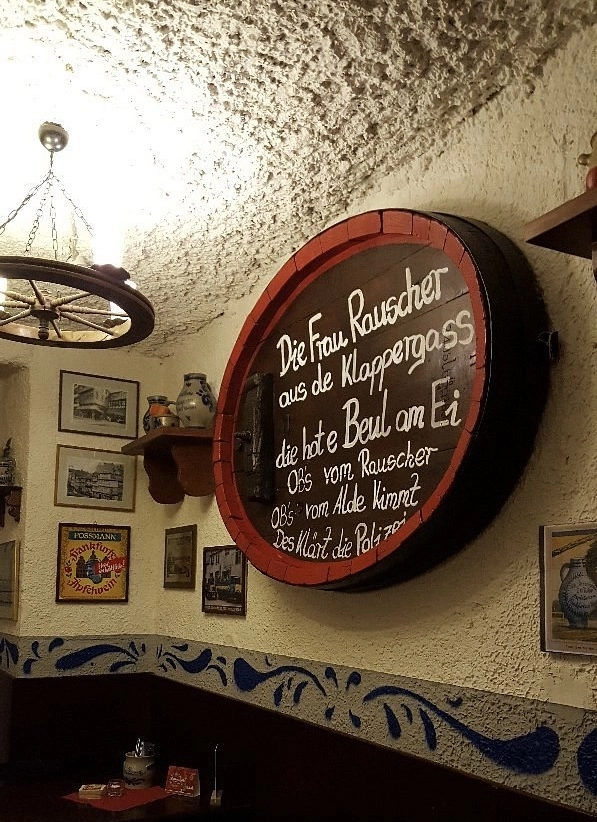 Die Frau Rauscher
aus de Klappergass
die hot e Beul am Ei
Ob's vom Rauscher
Ob's vom Alde kimmt
Des Klärt die Polizei
POSSMANN
Frankfurter
Apfelwein